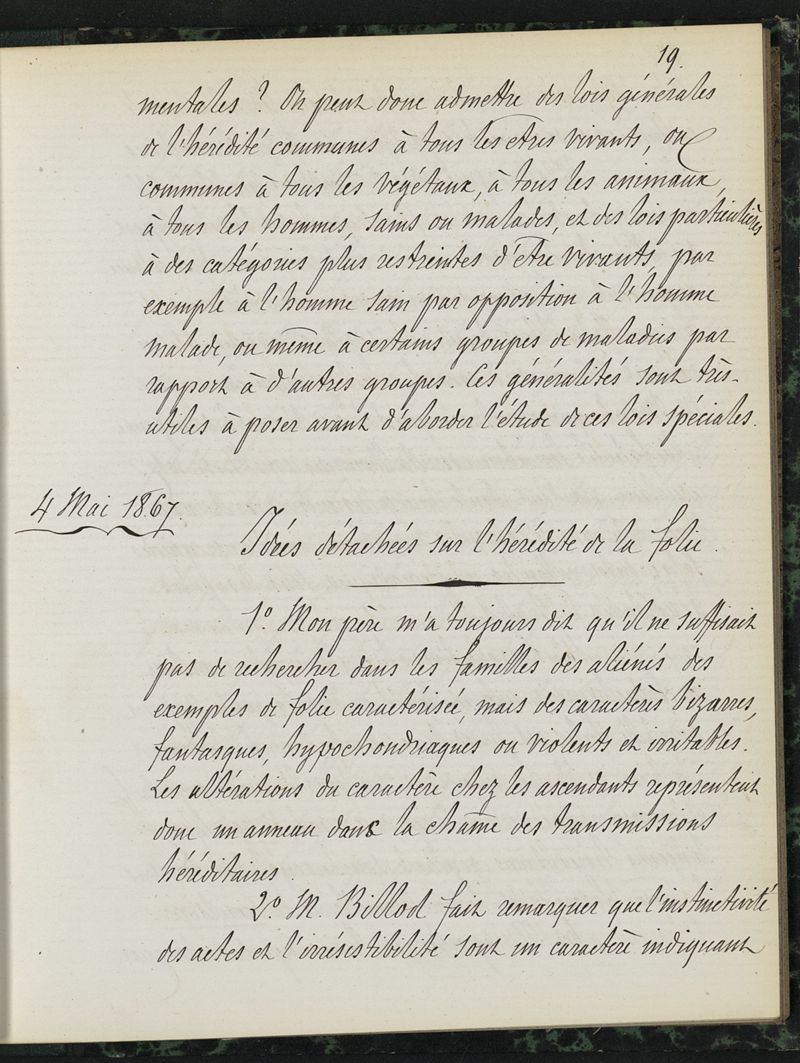 19.
mentales ? On peut donc admettre des lois générales
de l'hérédité communes à tous les êtres vivants, ou
communes à tous les végétaux, à tous les animaux,
à tous les hommes, sains ou malades, et des lois particulières
à des catégories plus restreintes d'être vivants, par
exemple à l'homme sain par opposition à l'homme
malade, ou même à certains groupes de maladies par
rapport à d'autres groupes. Ces généralités sont très-
utiles à poser avant d'aborder l'étude de ces lois spéciales.
4 Mai 1867.
Idées détachées sur l'hérédité de la folie.
1º. Mon père m'a toujours dit qu'il ne suffisait
pas de rechercher dans les familles des aliénés des
exemples de folie caractérisée, mais des caractères bizarres,
fantasques, hypochondriaques ou violents et irritables.
Les altérations du caractère chez les ascendants représentent
donc un anneau dans la chaîne des transmissions
héréditaires.
2º. M. Billod fait remarquer que l'instinctivité
des actes et l'irrésistibilité sont un caractère indiquant